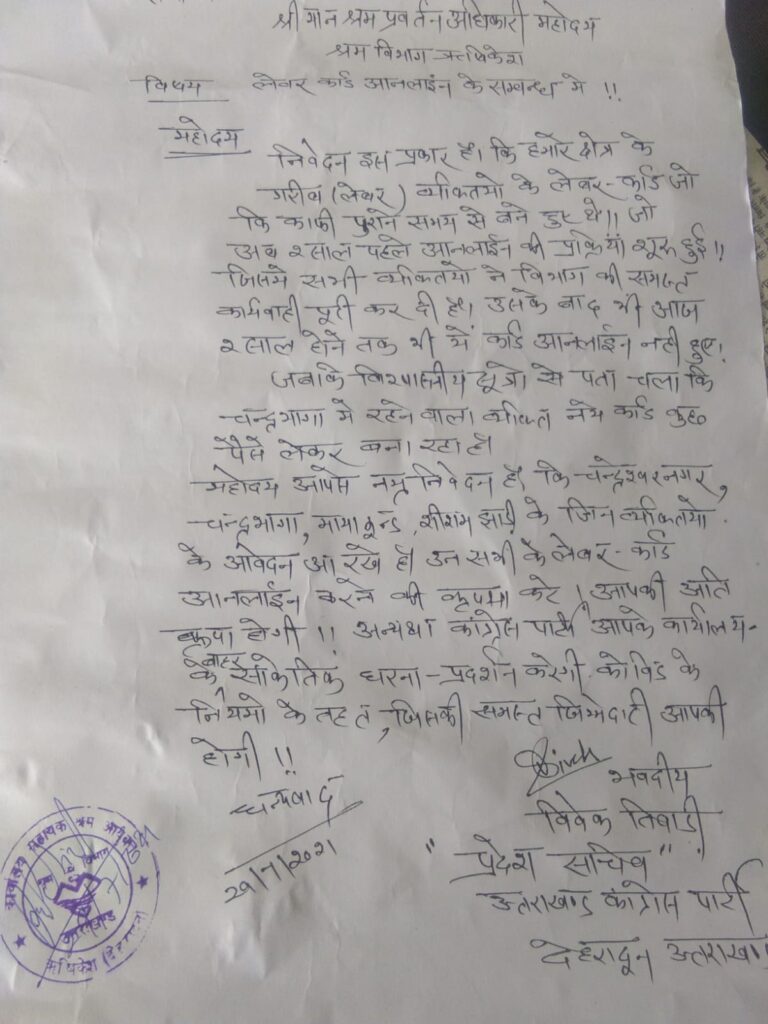 श्रीमान श्रम प्रवर्तन अधिकारी महोदय
श्रम विभाग ऋषिकेश
विषय लेबर कार्ड आनलाईन के सम्बन्ध मे !!
महोदय
निवेदन इस प्रकार है। कि हमारे क्षेत्र के
गरीब (लेबर) व्यक्तियो के लेबर-कार्ड जो
कि काफी पुराने समय से बने हुए थे।। जो
अब २ साल पहले आनलाईन की प्रक्रियां शुरू हुई।।
जिसमे सभी व्यक्तियो ने विभाग की समस्त
कार्यवाही पूरी कर दी है। उसके बाद भी आज
२ साल होने तक भी ये कार्ड आनलाईन नही हुए।
जबकि विश्वसनीय सूत्रो से पता चला कि
चन्द्रभागा मे रहने वाला व्यक्ति नये कार्ड कुछ
पैसे लेकर बना रहा है।
महोदय आपसे नम्र निवेदन है, कि चन्द्रेश्वरनगर,
चन्द्रभागा, मायाकुन्ड, शीशम झाडी के जिन व्यक्तियो
के आवेदन आ रखे है। उन सभी के लेबर-कार्ड
आनलाईन करने की कृपया करे। आपकी अति
कृपा होगी !! अन्यथा कांग्रेस पार्टी आपके कार्यालय-
के बाहर सांकेतिक धरना-प्रदर्शन करेगी कोविड के
नियमो के तहत, जिसकी समस्त जिम्मेदारी आपकी
होगी !!
धन्यवाद
भवदीय
विवेक तिवाडी
29/7/2021
"प्रदेश सचिव"
उत्तराखण्ड कांग्रेस पार्टी
देहरादून उत्तराखण्ड
कार्यालय सहायक श्रम आयुक्त
श्रम विभाग
उत्तराखण्ड
ऋषिकेश (देहरादून)